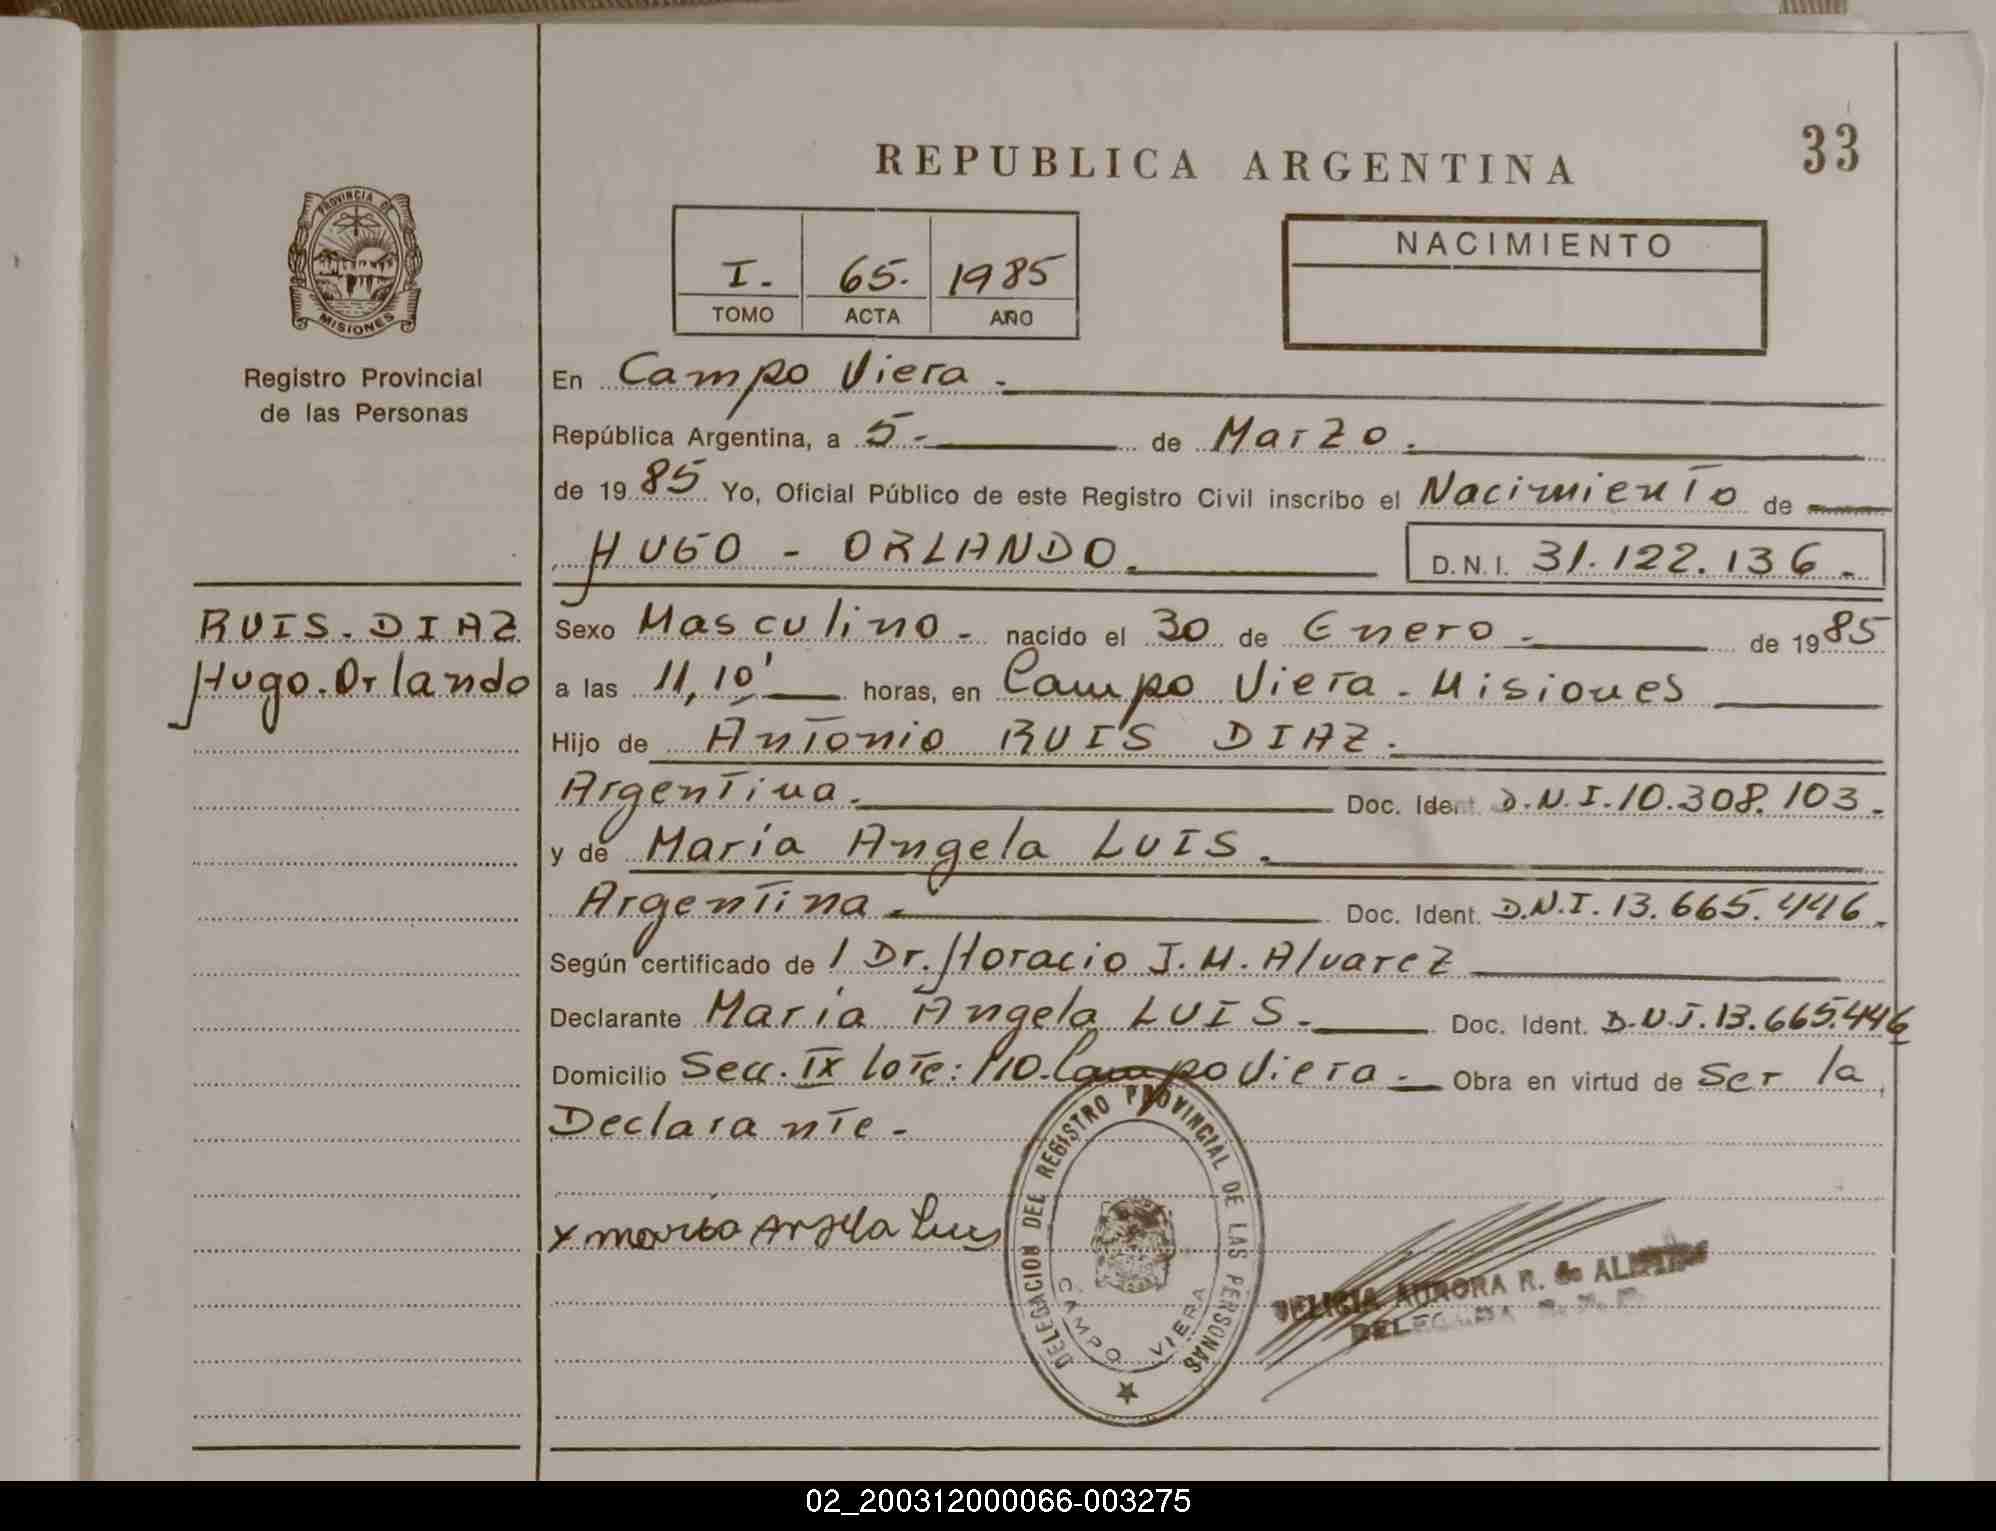 33
REPUBLICA ARGENTINA
PROVINCIA DE
MISIONES
Registro Provincial
de las Personas
I. 65. 1985
TOMO ACTA AÑO
NACIMIENTO
En Campo Viera.
República Argentina, a 5.- de Marzo.
de 1985 Yo, Oficial Público de este Registro Civil inscribo el Nacimiento de
HUGO - ORLANDO. D.N.I. 31.122.136.-
RUIS. DIAZ
Hugo. Orlando
Sexo Masculino.- nacido el 30 de Enero.- de 1985
a las 11,10' horas, en Campo Viera - Misiones
Hijo de Antonio RUIS DIAZ.
Argentina. Doc. Ident. D.N.I.10.308.103.-
y de María Angela LUIS.
Argentina.- Doc. Ident. D.N.I.13.665.446.-
Según certificado de / Dr. Horacio J.M. Alvarez
Declarante María Angela LUIS.- Doc. Ident. D.N.I.13.665.446
Domicilio Secc. IX lote: 110. Campo Viera.- Obra en virtud de Ser la
Declarante.-
x maria Angela Luis
DELEGACION DEL REGISTRO PROVINCIAL DE LAS PERSONAS
CAMPO VIERA
FELICIA AURORA R. de
DELEGADA
02_200312000066-003275